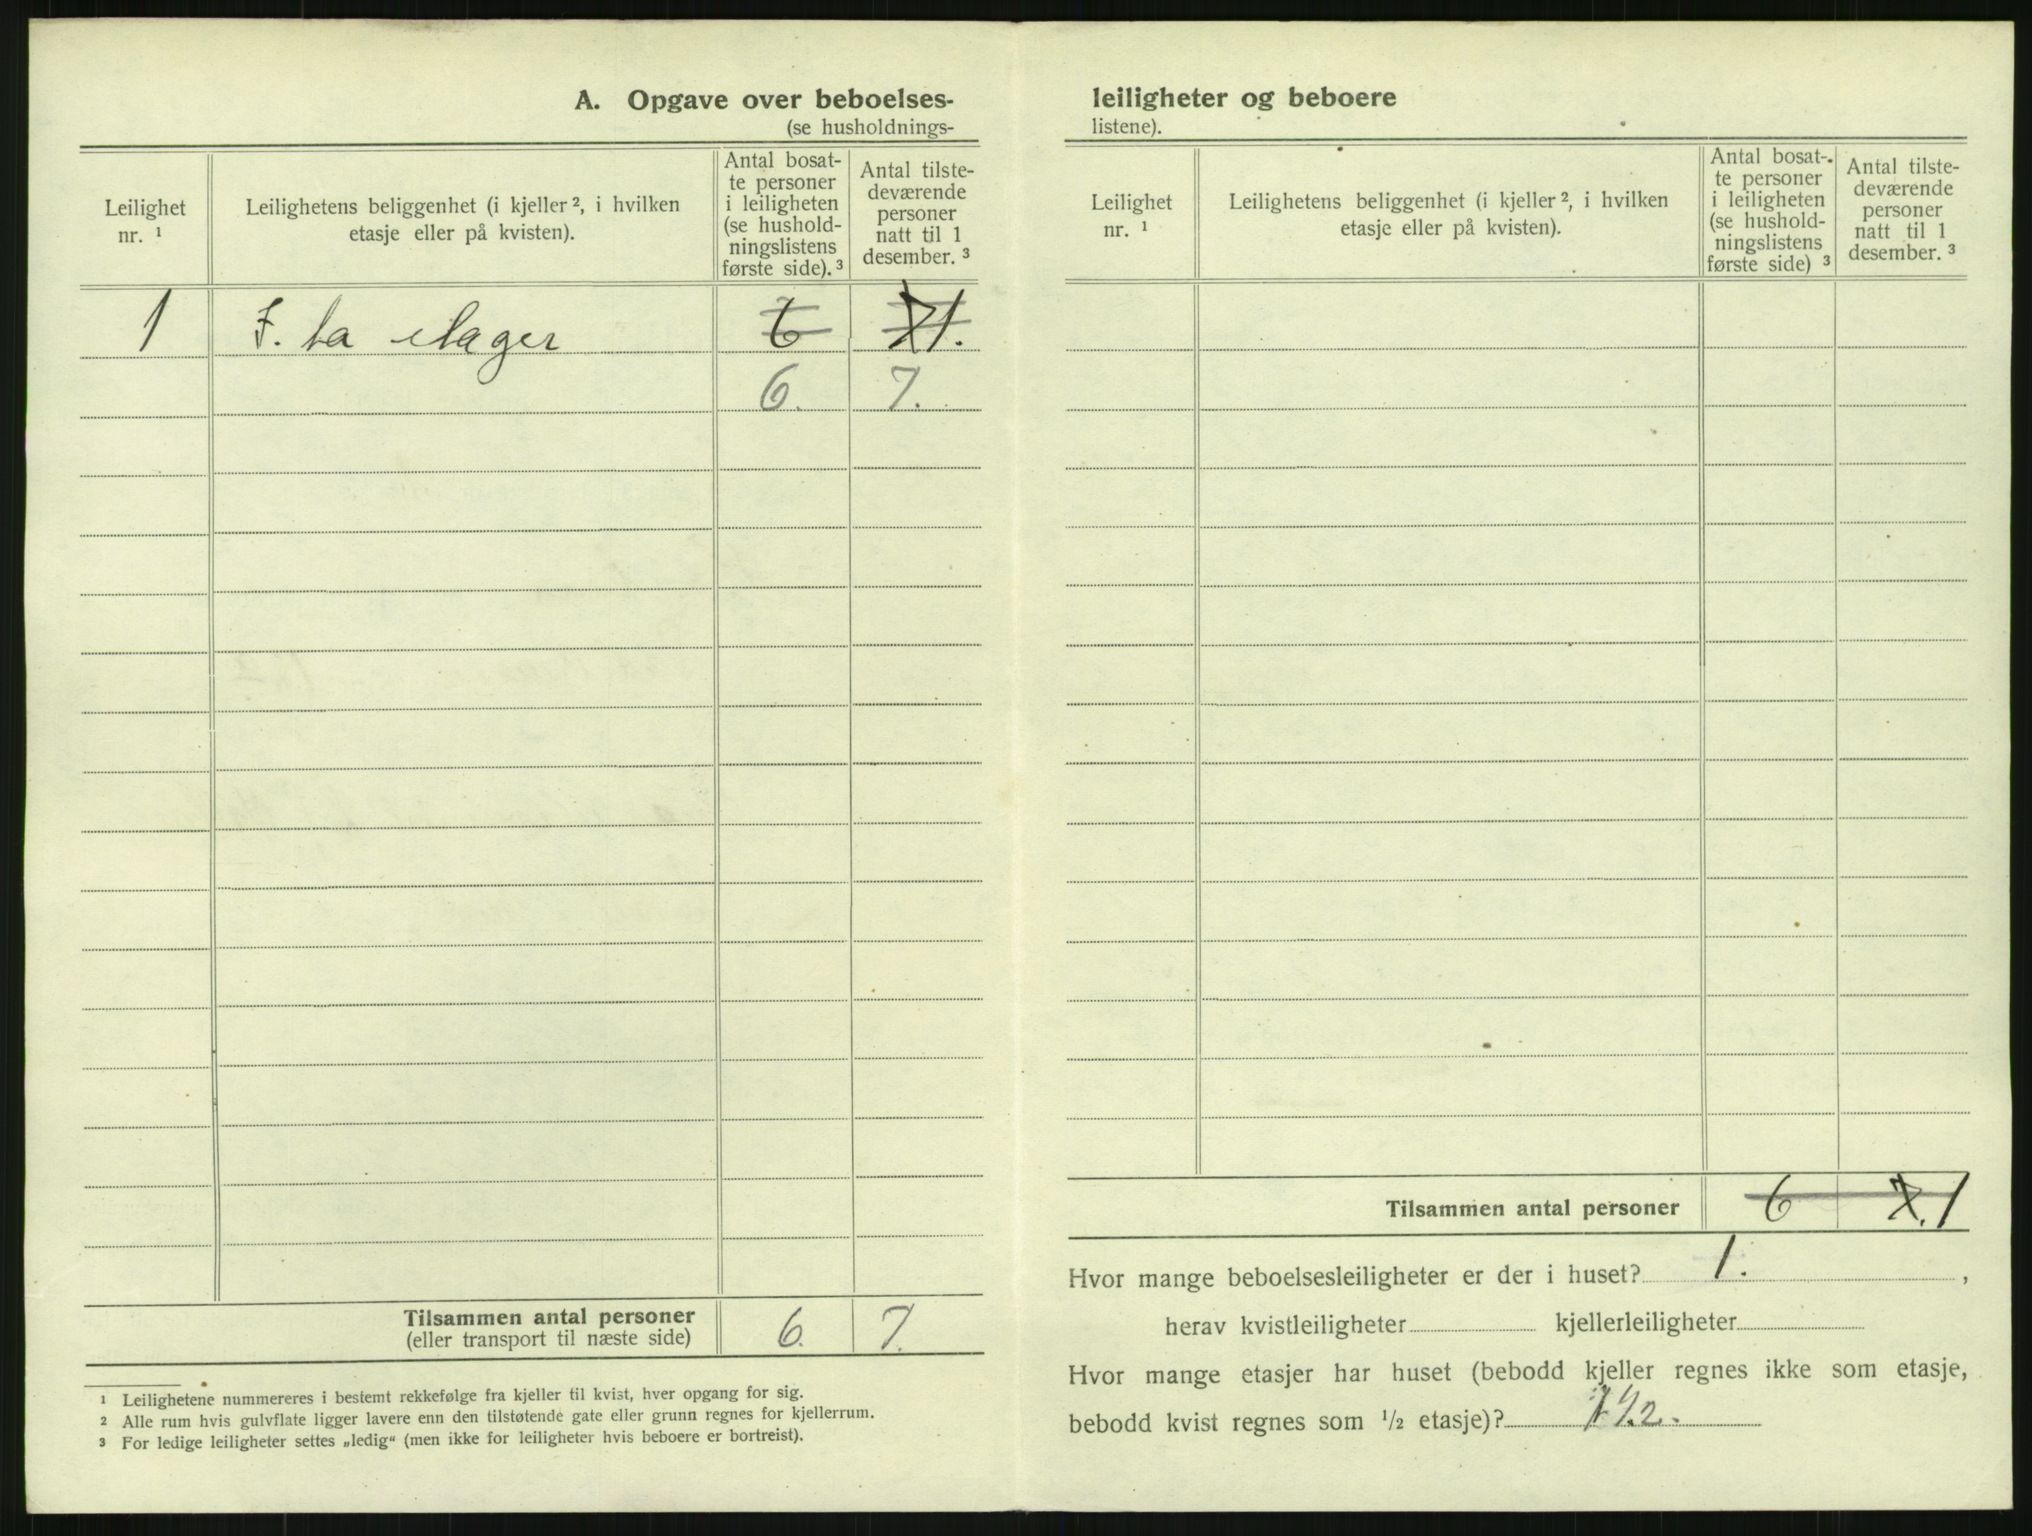 A. Opgave over beboelses-
(se husholdnings-
Leilighet nr. ¹
Leilighetens beliggenhet (i kjeller ², i hvilken etasje eller på kvisten).
Antal bosat-
te personer
i leiligheten
(se hushold-
ningslistens
første side). ³
Antal tilste-
deværende
personer
natt til 1
desember. ³
1 I. ta etager 6 7 1.
6. 7.
Tilsammen antal personer 6. 7.
(eller transport til næste side)
¹ Leilighetene nummereres i bestemt rekkefølge fra kjeller til kvist, hver opgang for sig.
² Alle rum hvis gulvflate ligger lavere enn den tilstøtende gate eller grunn regnes for kjellerrum.
³ For ledige leiligheter settes „ledig“ (men ikke for leiligheter hvis beboere er bortreist).
leiligheter og beboere
listene).
Leilighet nr. ¹
Leilighetens beliggenhet (i kjeller ², i hvilken etasje eller på kvisten).
Antal bosat-
te personer
i leiligheten
(se hushold-
ningslistens
første side) ³
Antal tilste-
deværende
personer
natt til 1
desember. ³
Tilsammen antal personer 6 7. 1
Hvor mange beboelsesleiligheter er der i huset? 1. ,
herav kvistleiligheter kjellerleiligheter
Hvor mange etasjer har huset (bebodd kjeller regnes ikke som etasje,
bebodd kvist regnes som ½ etasje)? 1 ½.